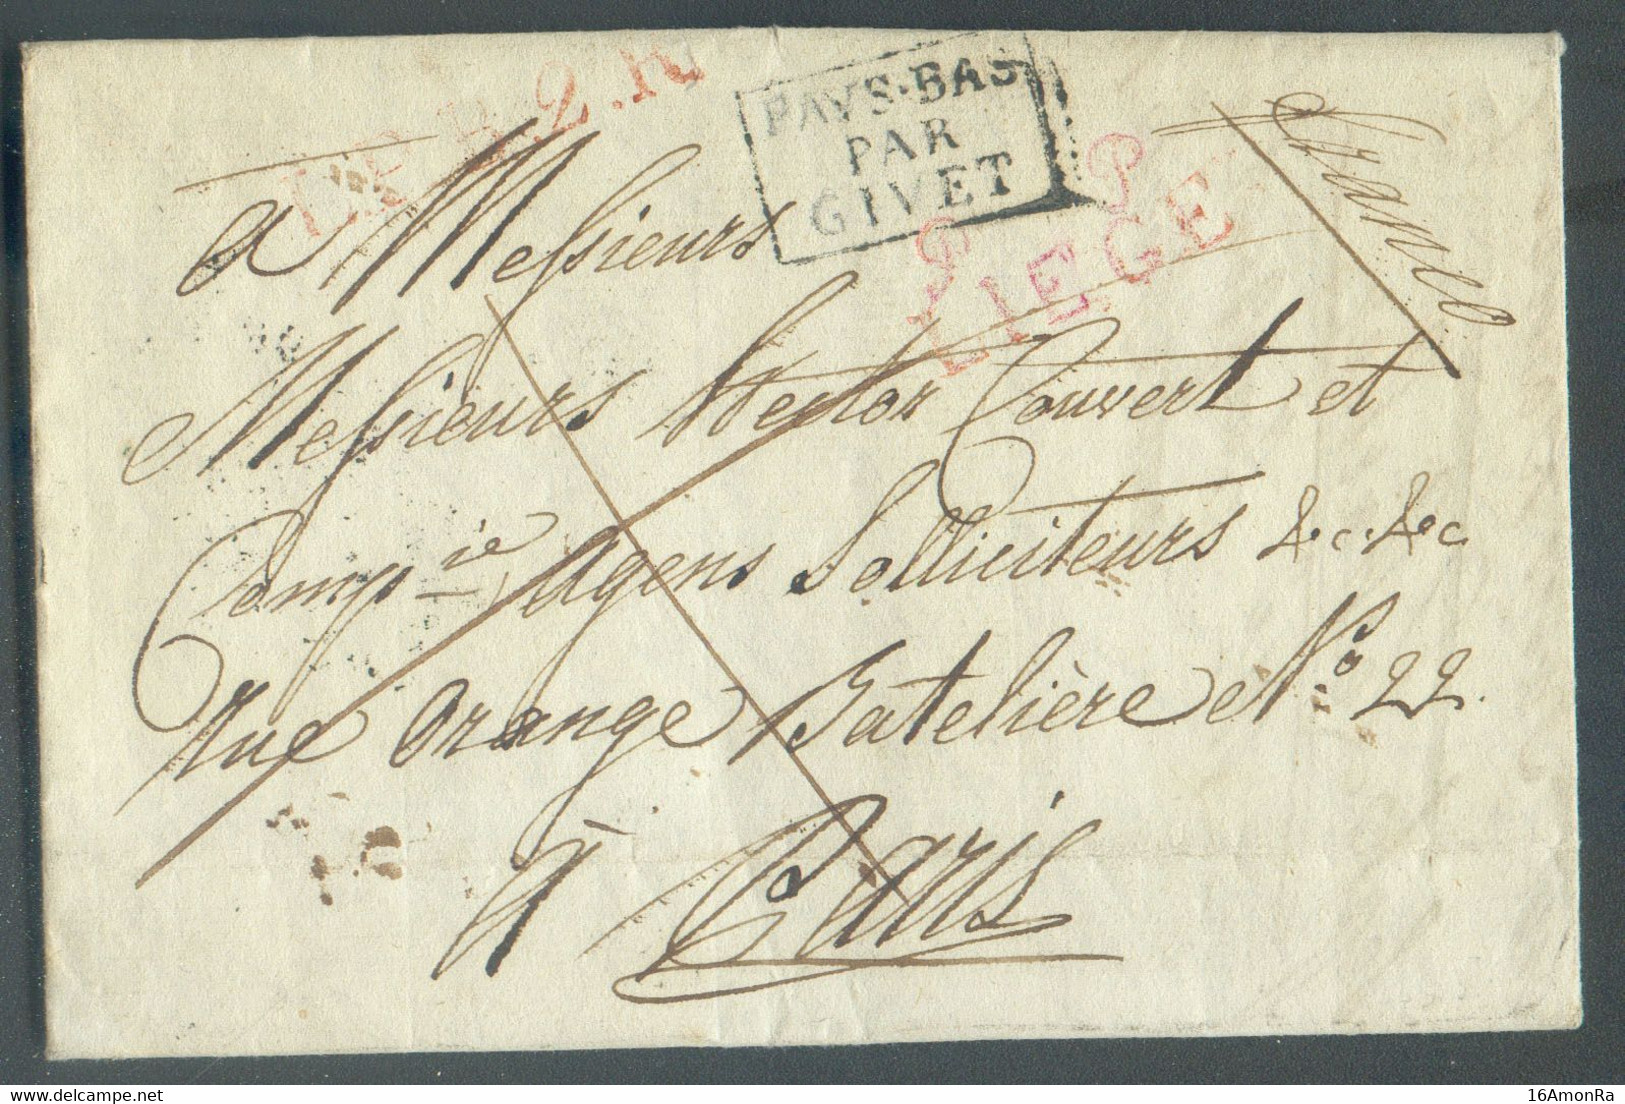 L.P.B.2.R.
PAYS·BAS
PAR
GIVET
P P
LIEGE
franco
a Messieurs
Messieurs Hector Couvert et
Comp.ie Agens Solliciteurs &c. &c
Rue Grange Batelière N.o 22.
à Paris
16AmonRa